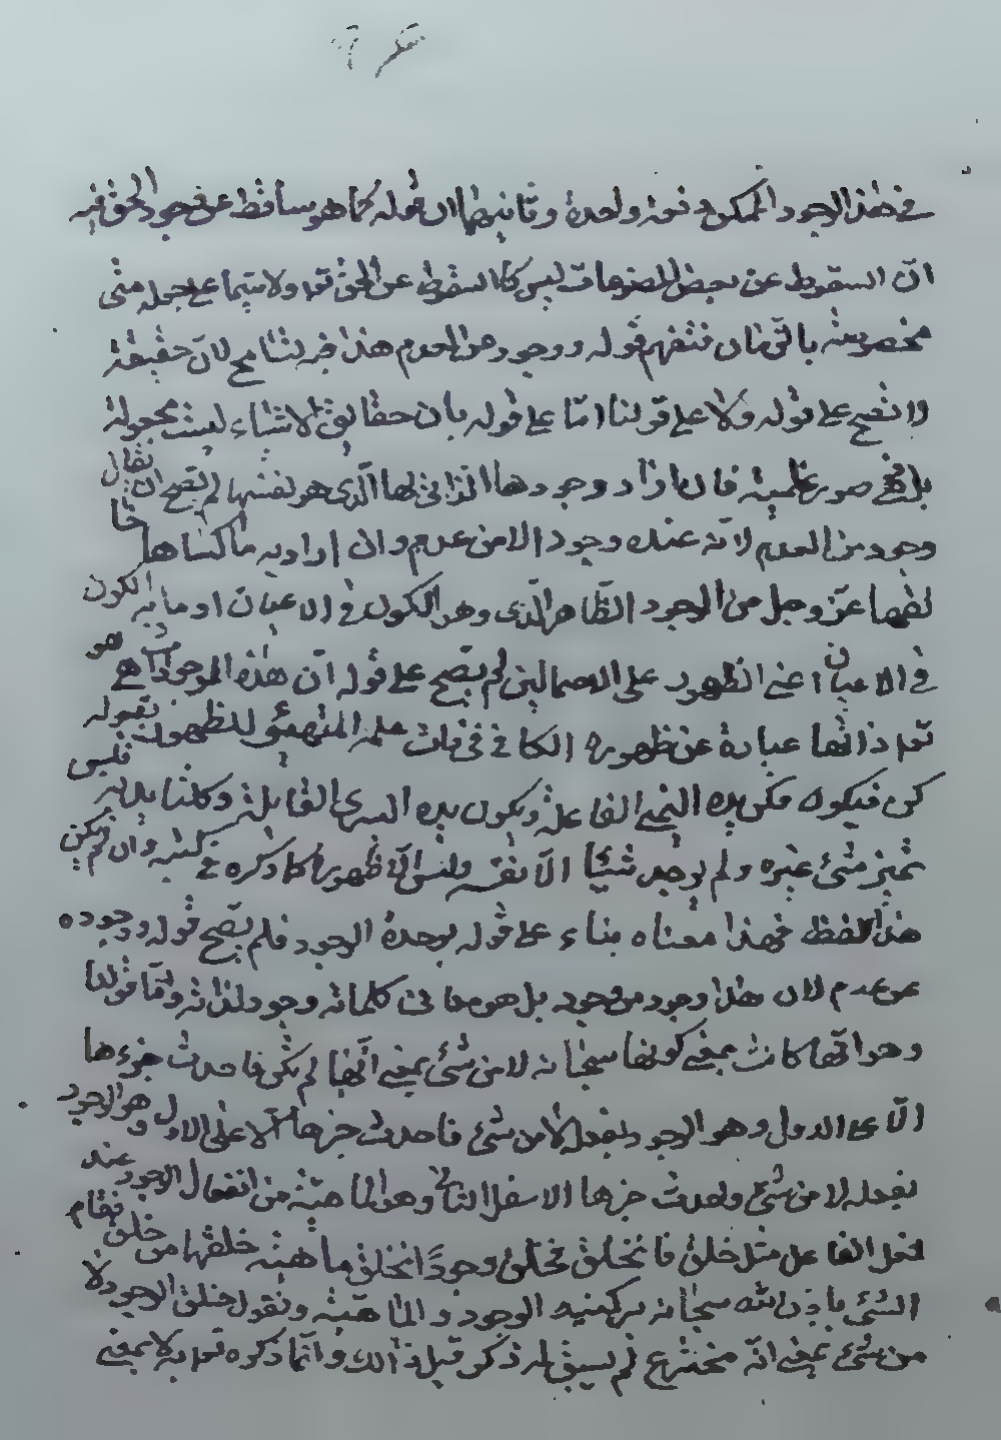 في هذا الوجود الممكن دفعة واحدة وثانيهما ان قوله كما هو ساقط عن وجود الحق فيه
انّ السقوط عن بعض المفهومات ليس كالسقوط عن الحق تعالى ولا سيّما على جعله
مخصوصة بالتي فان فتفهم قوله ووجود من العدم هذا فيه تسامح لان حقيقة
لا تصح على قوله ولا على قولنا امّا على قوله بان حقايق الاشياء ليست مجعولة
بل هي صور علمية فان اراد وجودها الذاتي لها الذي هو نفسها لم يصح ان يقال
وجود من العدم لانه عنده وجود لا من عدم وان اراد به ما كساها
عزّ وجل من الوجود الظّاهر الّذي وهو الكون في الاعيان او ما به الكون
في الاعيان اعني الظهور على الاحتمالين لم يصح على قوله انّ هذه الموجود هو
ذاتها عبارة عن ظهوره الكائن في ذات علمه المتهيّئ للظهور بقوله
كن فيكون فكن يده اليمنى الفاعلة ويكون يده اليسرى القابلة وكلتا يديه فليس
شئ غيره ولم يوجد شيئا الا نفسه وليس الّا ظهوره كما ذكره في كتبه وان لم يكن
هذا اللفظ فهذا معناه بناء على قوله بوحدة الوجود فلم يصح قوله ووجوده
من عدم لان هذا وجود من وجود بل هو معانى كلماته وجود لذاته وامّا قولنا
وهو انّها كانت بمعنى كونها سبحانه لا من شئ بمعنى انّها لم تكن فاحدث جزءها
الاعلى الاول وهو الوجود بفعله لا من شئ فاحدث جزءها الاعلى الاول وهو الوجود
بفعله لا من شئ واحدث جزءها الاسفل الثاني وهو الماهيّة من انفعال الوجود عند
فعل الفاعل مثل خلق فانخلق فخلق وجودًا انخلق ماهيته خلقها من خلق فقام
الشئ باذن الله سبحانه بركنيه الوجود والماهيّة ونقول خلق الوجود لا
من شئ بمعنى انّه مخترع لم يسبق له ذكر قبل ذلك وانّما ذكره تعالى به لا بمعنى